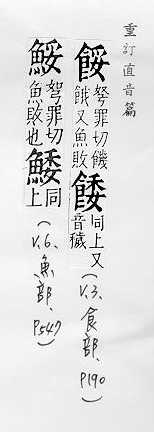 重訂直音篇
餒 弩罪切饑餓又魚敗 餧 同上又音穢 (V.3、食部、P190)
鮾 弩罪切魚敗也 鯘 同上 (V.6、魚部、P547)